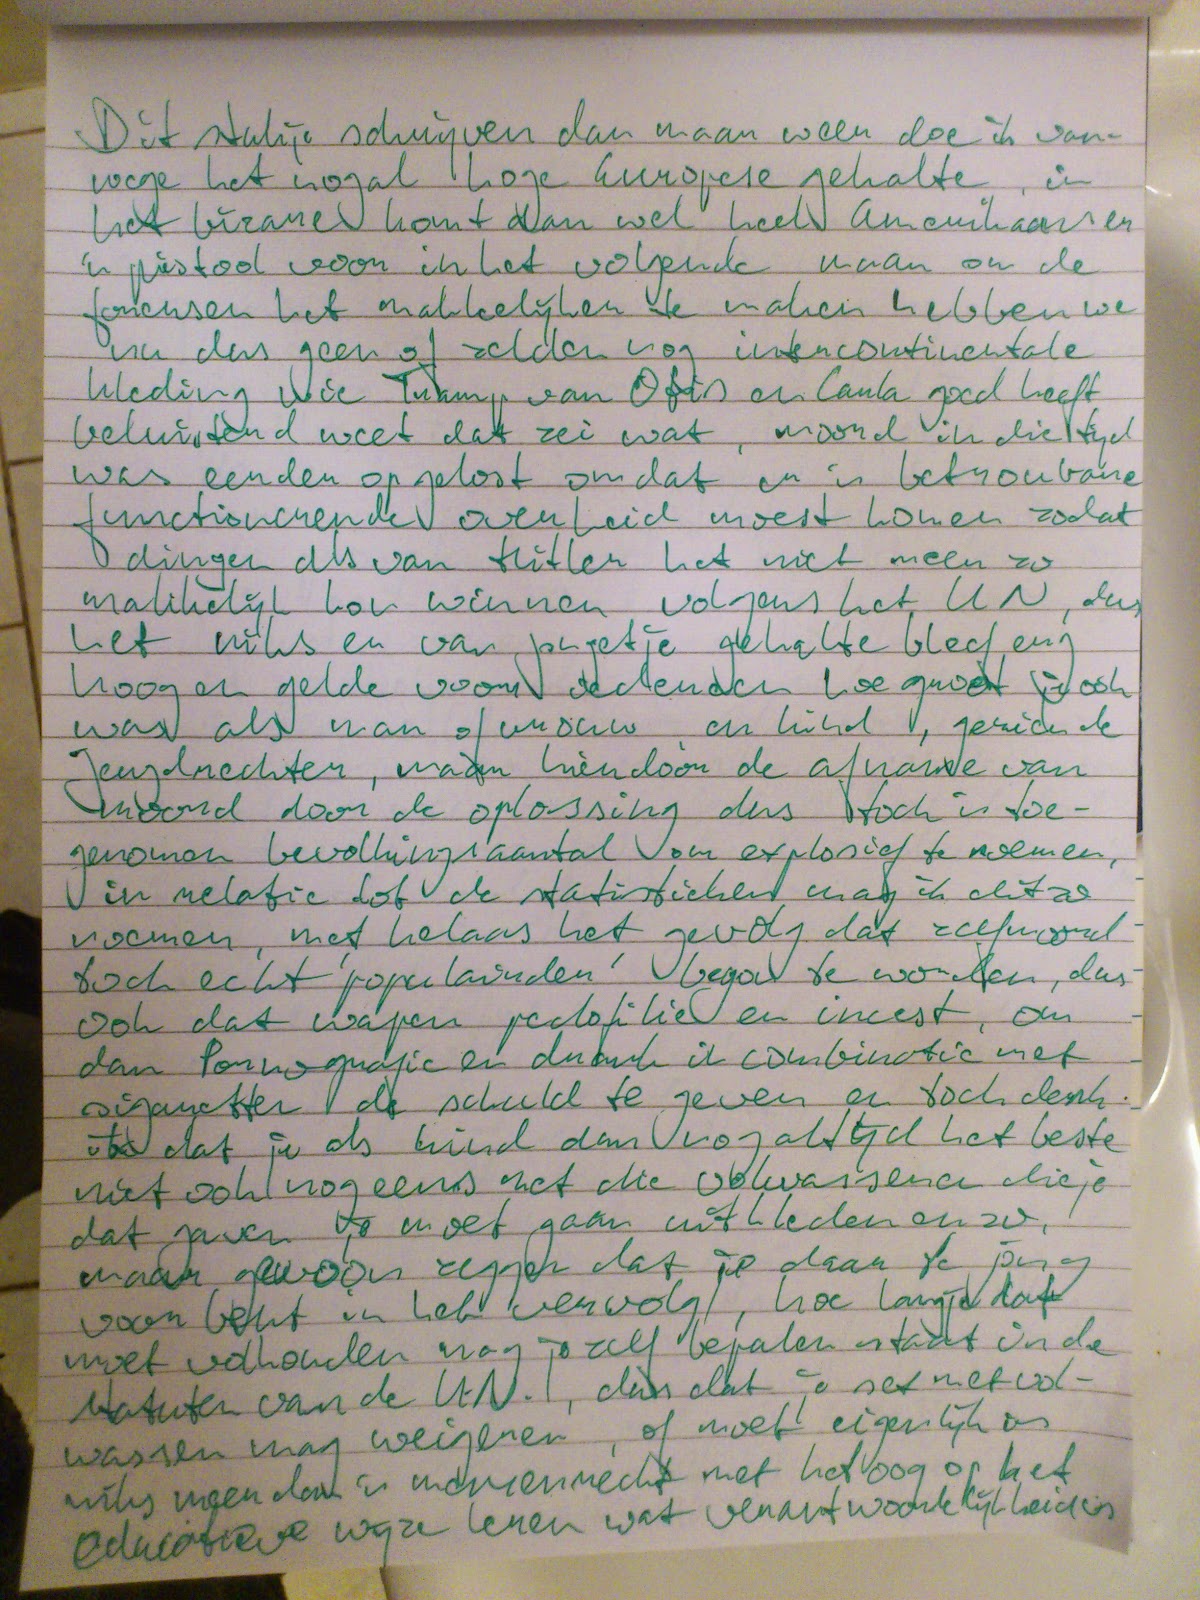 Dit stukje schrijven dan maar weer doe ik van-
wege het nogal hoge Europese gehalte, in
het bizarre komt dan wel heel Amerikaans er
'n pistool voor in het volgende maar om de
forensen het makkelijker te maken hebben we
nu dus geen of zelden nog intercontinentale
kleding wie Trump van Otis en Carla goed heeft
beluisterd weet dat zei wat, moord in die tijd
was eerder opgelost omdat er 'n betrouwbare
functionerende overheid moest komen zodat
dingen als van Hitler het niet meer zo
makkelijk kon winnen volgens het UN, dus
het niks er van gehalte bleef erg
hoog en gelde voor iedereen hoe groot je ook
was als man of vrouw en kind, gezien de
Jeugdrechter, maar hierdoor de afname van
moord door de oplossing dus toch 'n toe-
genomen bevolkingsaantal om explosief te noemen,
in relatie tot de statistieken mag ik dit zo
noemen, met helaas het gevolg dat zelfmoord
toch echt 'populairder' begon te worden, dus
ook dat wapen pedofilie en incest, om
dan Pornografie en drank in combinatie met
sigaretten de schuld te geven en toch denk
ik dat je als kind dan nog altijd het beste
niet ook nog eens met die volwassenen die je
dat gaven je moet gaan uitkleden en zo,
maar gewoon zeggen dat je daar te jong
voor bent in het vervolg, hoe lang je dat
moet volhouden mag je zelf bepalen staat in de
statuten van de U.N., dus dat je sex met vol-
wassen mag weigeren, of moet eigenlijk is
niks meer dan 'n mensenrecht met het oog op het
educatieve wijze leren wat verantwoordelijkheid is